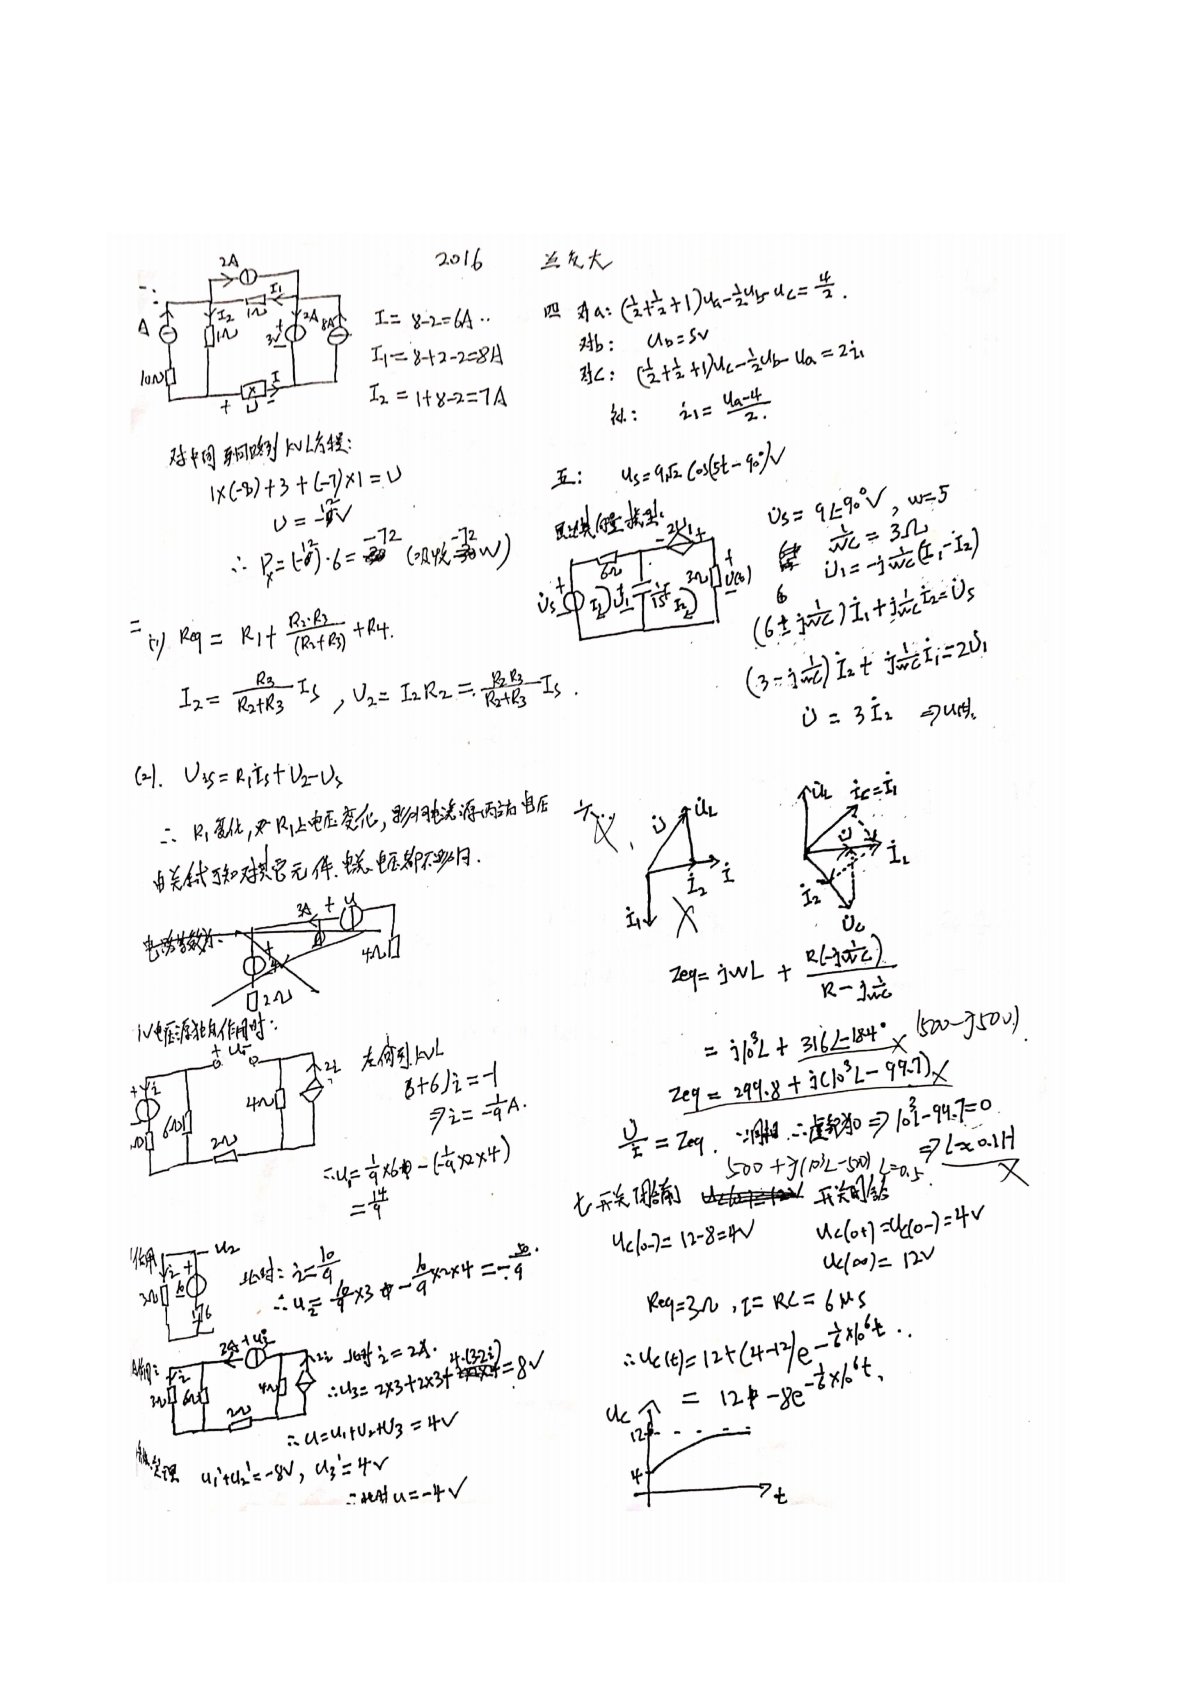 2016
一:
2A
I1
I2
1Ω
1Ω
2A
8A
3V
A
10Ω
X
I
+ U -
I = 8-2=6A
I1 = 8+2-2=8A
I2 = 1+8-2=7A
KVL方程:
1×(-8)+3+(-7)×1=U
U = -12V
∴ Px=(-12)·6= -72 (吸收-72W)
二
(1) Req = R1 + R2·R3/(R2+R3) + R4.
I2 = R3/(R2+R3) Is , U2 = I2R2 = R2R3/(R2+R3) Is .
(2). UIs = R1Is+U2-Us
∴ R1变化, R1上电压变化, 影响电流源两端电压
由关系式可知对其它元件电流、电压都不影响.
3A + U
4Ω
4V
2Ω
1V电压源独自作用时:
+ U1 -
i
6Ω
4Ω
2i
2Ω
左侧列KVL
(3+6)i=-1
⇒ i = -1/9 A.
∴ u1 = 1/9×6 - (-1/9×2×4)
= 14/9
U2
i
3Ω
6
此时: i = 10/9
∴ u2 = -10/9×3 - 10/9×2×4 = -50/9
3A + U3
i
3Ω
6Ω
4Ω
2i
2Ω
此时 i = 2A.
∴ u3 = 2×3+2×3+4·(3-2i) = 8V
∴ u=u1+u2+u3 = 4V
u1'+u2'=-8V, u3'=4V
∴ 此时 u=-4V
四 对a: (1/2+1/2+1)ua-1/2ub-uc=4/2.
对b: ub=5V
对c: (1/2+1/2+1)uc-1/2ub-ua=2i1
补: i1 = (ua-4)/2.
五: us=9√2 cos(5t-90°)V
- 2U1 +
6Ω
3Ω
U̇s
İ1
U̇1
İ2
U̇s = 9∠-90°V , w=5
1/wC = 3Ω
U̇1=-j 1/wC (İ1-İ2)
(6-j 1/wC)İ1+j 1/wC İ2=U̇s
(3-j 1/wC)İ2+j 1/wC İ1=2U̇1
U̇ = 3İ2 ⇒ u(t).
六.
U̇
U̇L
İ
İ2
İ1
U̇L
İC=İ1
U̇
İL
İ2
U̇C
Zeq= jwL + R(-j 1/wC)/(R-j 1/wC)
= j10³L + 316∠-18.4° (500-j500)
Zeq = 299.8 + j(10³L-99.7)
U̇/İ = Zeq. ∵同相 ∴虚部为0 ⇒ 10³L-99.7=0
500+j(10³L-500) L=0.5 ⇒ L≈0.1H
七 开关闭合前 开关闭合
uc(0-) = 12-8=4V
uc(0+)=uc(0-)=4V
uc(∞)= 12V
Req=3Ω , τ= RC = 6μs
∴ uc(t)=12+(4-12)e^(-1/6×10⁶t).
= 12-8e^(-1/6×10⁶t).
uc
12
4
t